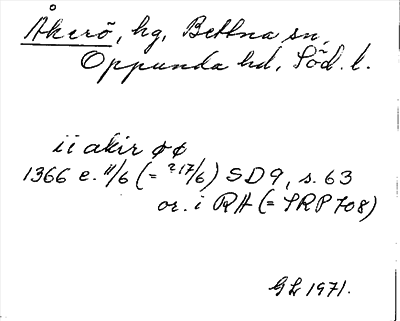 Åkerö, hg, Bettna sn,
Oppunda hd, Söd. l.
ii akir øø
1366 e. 11/6 (= ? 17/6) SD 9, s. 63
or. i RA (= SRP 708)
GL 1971.